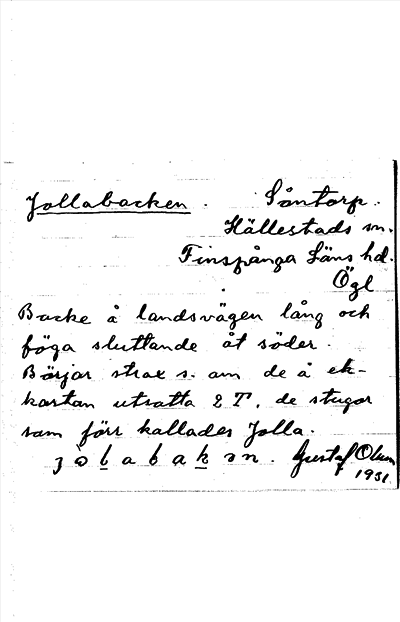 Jollabacken. Såntorp.
Hällestads sn.
Finspånga Läns hd.
Ögl
Backe å landsvägen lång och
föga sluttande åt söder.
Börjar strax s. om de å ek-
kartan utsatta 2 T, de stugor
som förr kallades Jolla.
Gustaf
1931